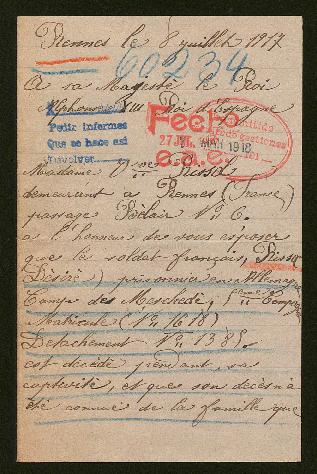 Rennes le 8 juillet 1917
60234
A sa Majesté le Roi
Alphonse XIII Roi d'Espagne
Pedir informes
Que se hace asi
Fecho
27 JUL.
1918
Madame Vve Russon
demeurant à Rennes (France)
passage Bélair No 6.
a l'honneur de vous exposer
que le soldat français, Russon
Désiré) prisonnier en Allemagne
Camp des Merschede,
Matricule (No 1618)
Detachement No 1385.
est décédé pendant, sa
captivité, et que son décès n'a
été connue de la famille que